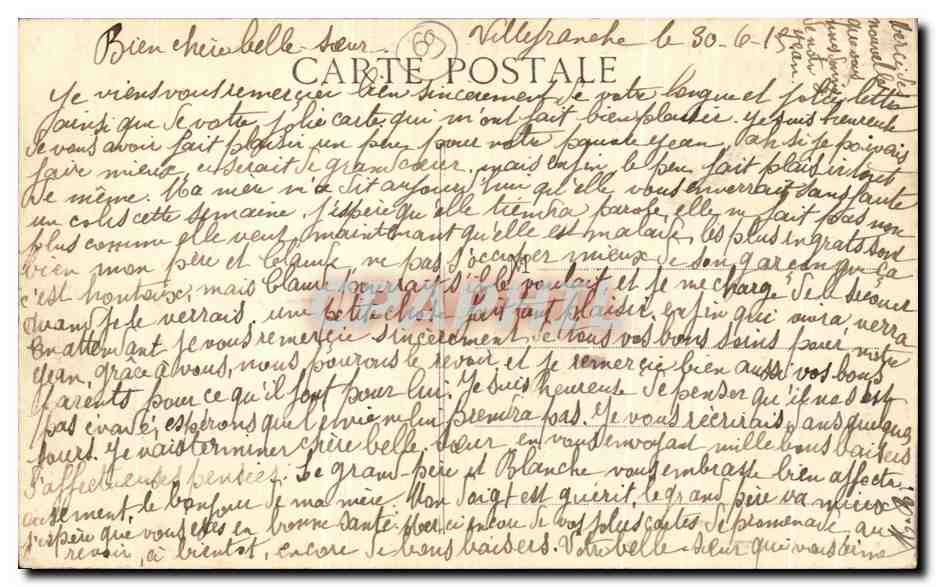 Bien chère belle-sœur
69
Villefranche le 30-6-15
CARTE POSTALE
Je viens vous remercier bien sincèrement de votre longue et jolie lettre
ainsi que de votre jolie carte qui m'ont fait bien plaisir. Je suis heureuse
de vous avoir fait plaisir un peu pour notre Jean. Ah si je pouvais
faire mieux, ce serait de grand cœur, mais enfin le peu fait plaisir tout
de même. Ma mère m'a dit aujourd'hui qu'elle vous enverrait sans faute
un colis cette semaine. J'espère qu'elle tiendra parole, elle ne fait pas non
plus comme elle veut, maintenant qu'elle est malade. Les plus ingrats sont
bien mon père et Claude, ne pas s'occuper mieux de son garçon que ça
c'est honteux, mais Claude pourrait s'il le voulait et je me charge de le secouer
quand je le verrais, une petite chose fait tant plaisir. Enfin qui vivra verra
En attendant je vous remercie sincèrement de tous vos bons soins pour notre
Jean, grâce à vous, nous pourrons le revoir et je remercie bien aussi vos bons
Parents pour ce qu'il font pour lui. Je suis heureuse de penser qu'il ne s'est
pas évadé, espérons que l'envie ne lui prendra pas. Je vous récrirais dans quelques
jours. Je vais terminer chère belle-sœur en vous envoyant mille bons baisers
d'affectueuses pensées. Le grand-père et Blanche vous embrasse bien affectu-
eusement, le bonjour de ma mère. Mon doigt est guérit, le grand père va mieux
j'espère que vous êtes en bonne santé. Merci encore de vos plus cartes de promenade au
revoir, à bientôt, encore de bons baisers. Votre belle-sœur qui vous aime
Merci des
nouvelles
que vous
Jean.
CPAPHIL